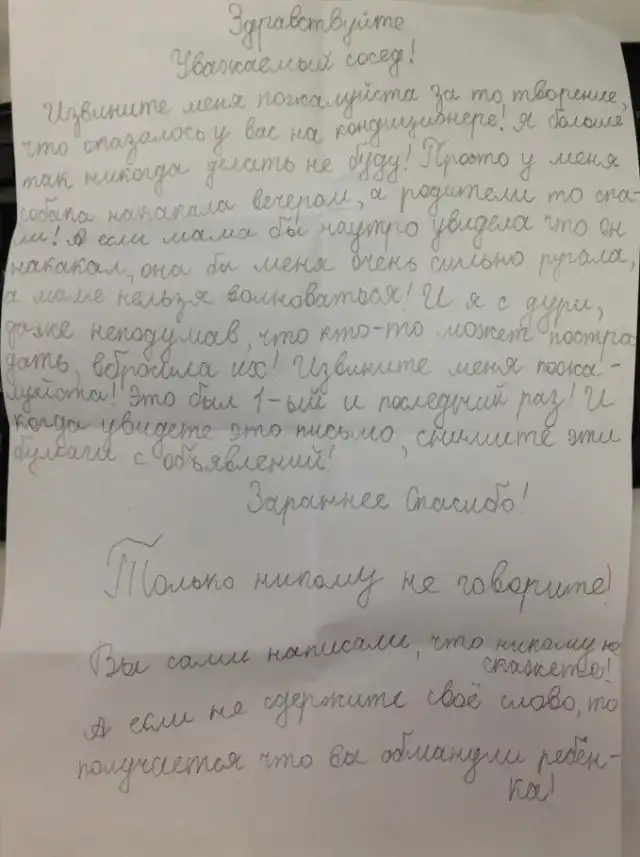 Здравствуйте
Уважаемый сосед!
Извините меня пожалуйста за то, творение,
что оказалось у вас на кондиционере! Я больше
так никогда делать не буду! Просто у меня
собака накакала вечером, а родители то спа-
ли! А если мама бы наутро увидела что он
накакал, она бы меня очень сильно ругала,
а маме нельзя волноваться! И я с дури,
даже неподумав, что кто-то может постра
дать, вбросила их! Извините меня пожа-
луйста! Это был 1-ый и последний раз! И
когда увидете это письмо, снимите эти
бумаги с объявлений!
Зараннее Спасибо!
Только никому не говорите!
Вы сами написали, что никому не
скажете!
А если не сдержите своё слово, то
получается что вы обманули ребён-
ка!